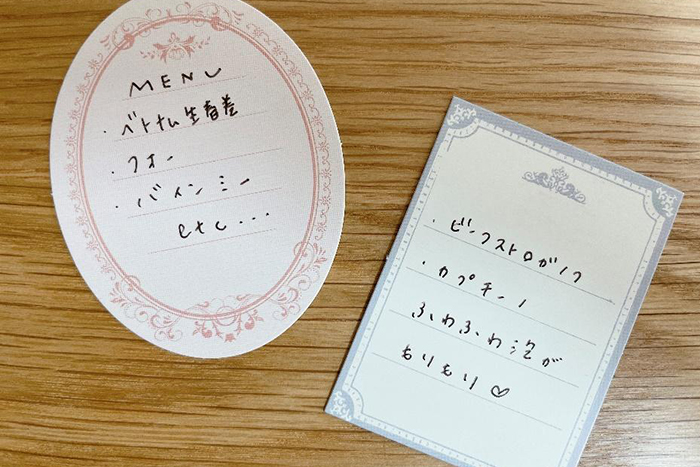 MENU
・ベトナム生春巻
・フォー
・バインミー
etc...
・ビーフストロガノフ
・カプチーノ
ふわふわ泡が
もりもり♡